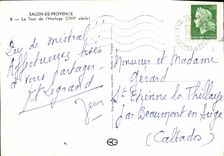 SALON-DE-PROVENCE
8 - La Tour de l'Horloge (XVIIe siècle)
Pas de mistral!
Affectueuses pensées
à vous partager.
Legrand
Jean
Monsieur et Madame
Gérard
St Etienne la Thillaye
par Beaumont en Auge
(Calvados)